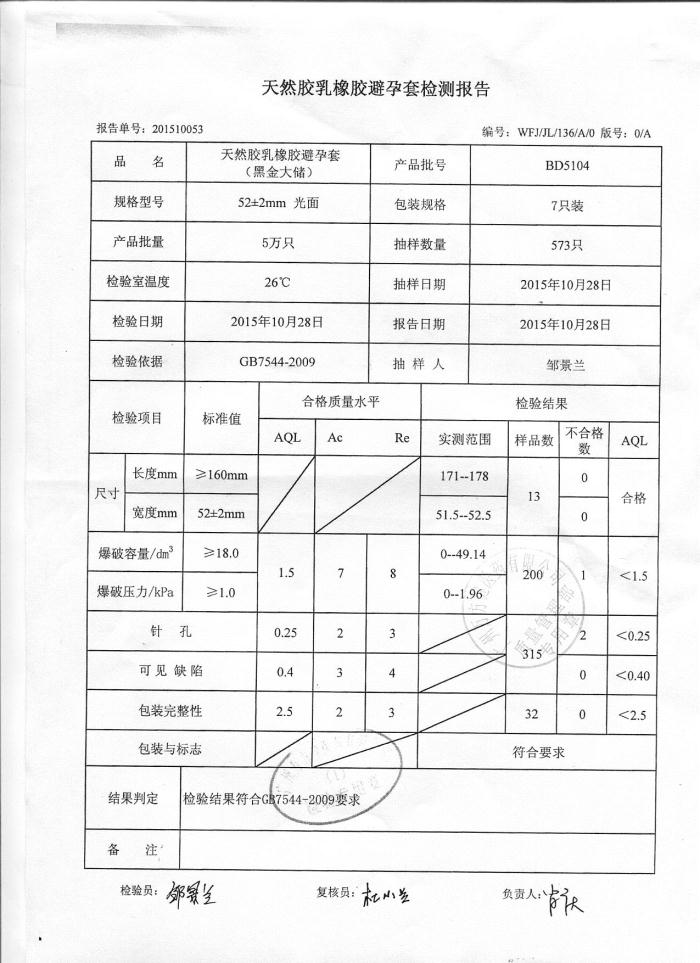 天然胶乳橡胶避孕套检测报告
报告单号：201510053
编号：WFJ/JL/136/A/0 版号：0/A
品 名 天然胶乳橡胶避孕套（黑金大储） 产品批号 BD5104
规格型号 52±2mm 光面 包装规格 7只装
产品批量 5万只 抽样数量 573只
检验室温度 26℃ 抽样日期 2015年10月28日
检验日期 2015年10月28日 报告日期 2015年10月28日
检验依据 GB7544-2009 抽 样 人 邹景兰
检验项目 标准值 合格质量水平 检验结果
AQL Ac Re 实测范围 样品数 不合格数 AQL
尺寸 长度mm ≥160mm 171--178 13 0 合格
宽度mm 52±2mm 51.5--52.5 0
爆破容量/dm³ ≥18.0 1.5 7 8 0--49.14 200 1 <1.5
爆破压力/kPa ≥1.0 0--1.96
针 孔 0.25 2 3 315 2 <0.25
可见缺陷 0.4 3 4 0 <0.40
包装完整性 2.5 2 3 32 0 <2.5
包装与标志 符合要求
结果判定 检验结果符合GB7544-2009要求
备 注
检验员：邹景兰 复核员：杜小兰 负责人：
质量管理部
专用章
(1)